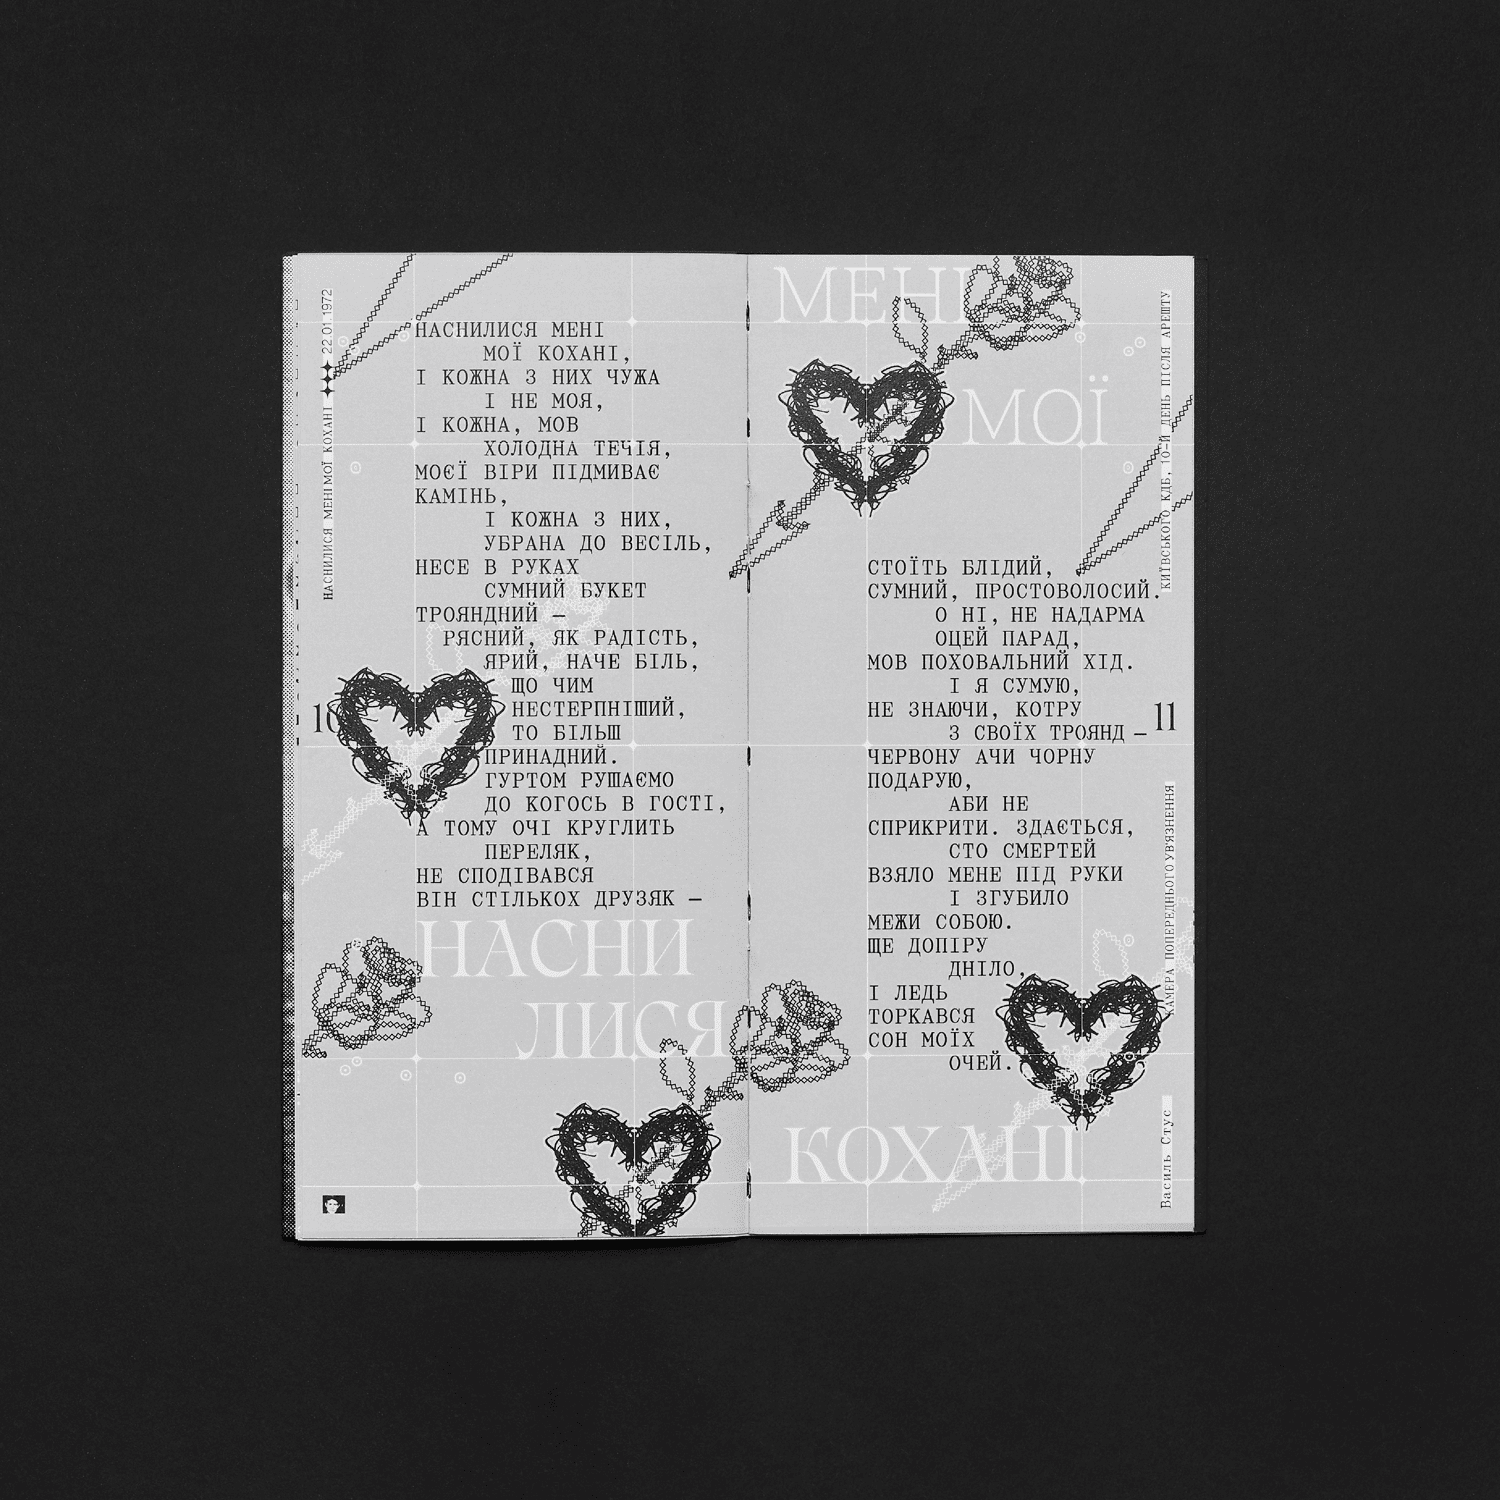 НАСНИЛИСЯ МЕНІ МОЇ КОХАНІ ✦✦✦ 22.01.1972
НАСНИЛИСЯ МЕНІ
МОЇ КОХАНІ,
І КОЖНА З НИХ ЧУЖА
І НЕ МОЯ,
І КОЖНА, МОВ
ХОЛОДНА ТЕЧІЯ,
МОЄЇ ВІРИ ПІДМИВАЄ
КАМІНЬ,
І КОЖНА З НИХ,
УБРАНА ДО ВЕСІЛЬ,
НЕСЕ В РУКАХ
СУМНИЙ БУКЕТ
ТРОЯНДНИЙ —
РЯСНИЙ, ЯК РАДІСТЬ,
ЯРИЙ, НАЧЕ БІЛЬ,
ЩО ЧИМ
НЕСТЕРПНІШИЙ,
ТО БІЛЬШ
ПРИНАДНИЙ.
ГУРТОМ РУШАЄМО
ДО КОГОСЬ В ГОСТІ,
А ТОМУ ОЧІ КРУГЛИТЬ
ПЕРЕЛЯК,
НЕ СПОДІВАВСЯ
ВІН СТІЛЬКОХ ДРУЗЯК —
10
НАСНИ
ЛИСЯ
МЕНІ
МОЇ
СТОЇТЬ БЛІДИЙ,
СУМНИЙ, ПРОСТОВОЛОСИЙ.
О НІ, НЕ НАДАРМА
ОЦЕЙ ПАРАД,
МОВ ПОХОВАЛЬНИЙ ХІД.
І Я СУМУЮ,
НЕ ЗНАЮЧИ, КОТРУ
З СВОЇХ ТРОЯНД —
ЧЕРВОНУ АЧИ ЧОРНУ
ПОДАРУЮ,
АБИ НЕ
СПРИКРИТИ. ЗДАЄТЬСЯ,
СТО СМЕРТЕЙ
ВЗЯЛО МЕНЕ ПІД РУКИ
І ЗГУБИЛО
МЕЖИ СОБОЮ.
ЩЕ ДОПІРУ
ДНІЛО,
І ЛЕДЬ
ТОРКАВСЯ
СОН МОЇХ
ОЧЕЙ.
11
КОХАНІ
Василь Стус
КАМЕРА ПОПЕРЕДНЬОГО УВ'ЯЗНЕННЯ
КИЇВСЬКОГО КДБ, 10-Й ДЕНЬ ПІСЛЯ АРЕШТУ